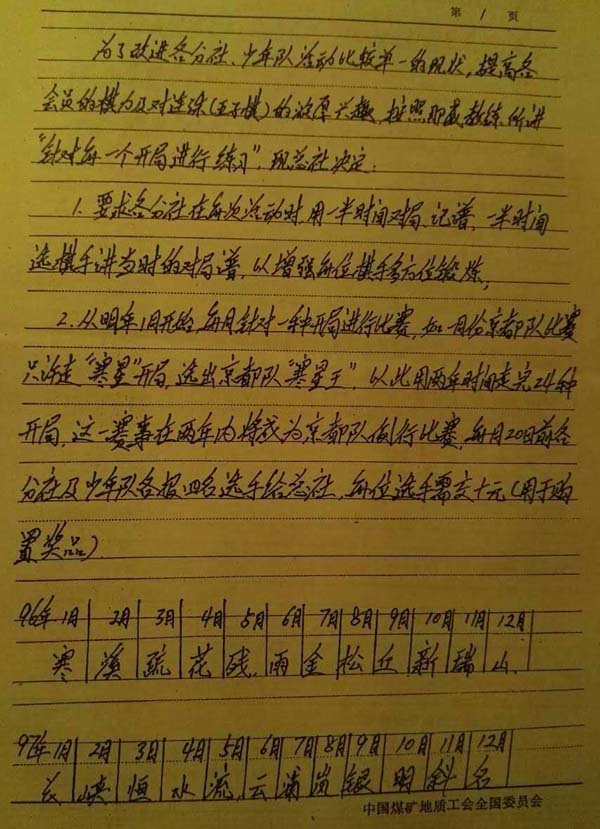 第 1 页
为了改进各分社、少年队活动比较单一的现状，提高各
会员的棋力及对连珠（五子棋）的浓厚兴趣，按照那威教练所讲
“针对每一个开局进行练习”，现总社决定：
1. 要求各分社在每次活动时，用一半时间对局、记谱，一半时间
选棋手讲当时的对局谱，以增强每位棋手多方位锻炼。
2. 从明年1月开始，每月针对一种开局进行比赛，如一月份京都队比赛
只许走“寒星”开局，选出京都队“寒星王”，以此用两年时间走完24种
开局，这一赛事在两年内将成为京都队例行比赛，每月20日前各
分社及少年队各报四名选手给总社，每位选手需交十元（用于购
置奖品）
96年1月 2月 3月 4月 5月 6月 7月 8月 9月 10月 11月 12月
寒 溪 疏 花 残 雨 金 松 丘 新 瑞 山
97年1月 2月 3月 4月 5月 6月 7月 8月 9月 10月 11月 12月
峡 恒 水 流 云 浦 岚 银 明 斜 名
中国煤矿地质工会全国委员会